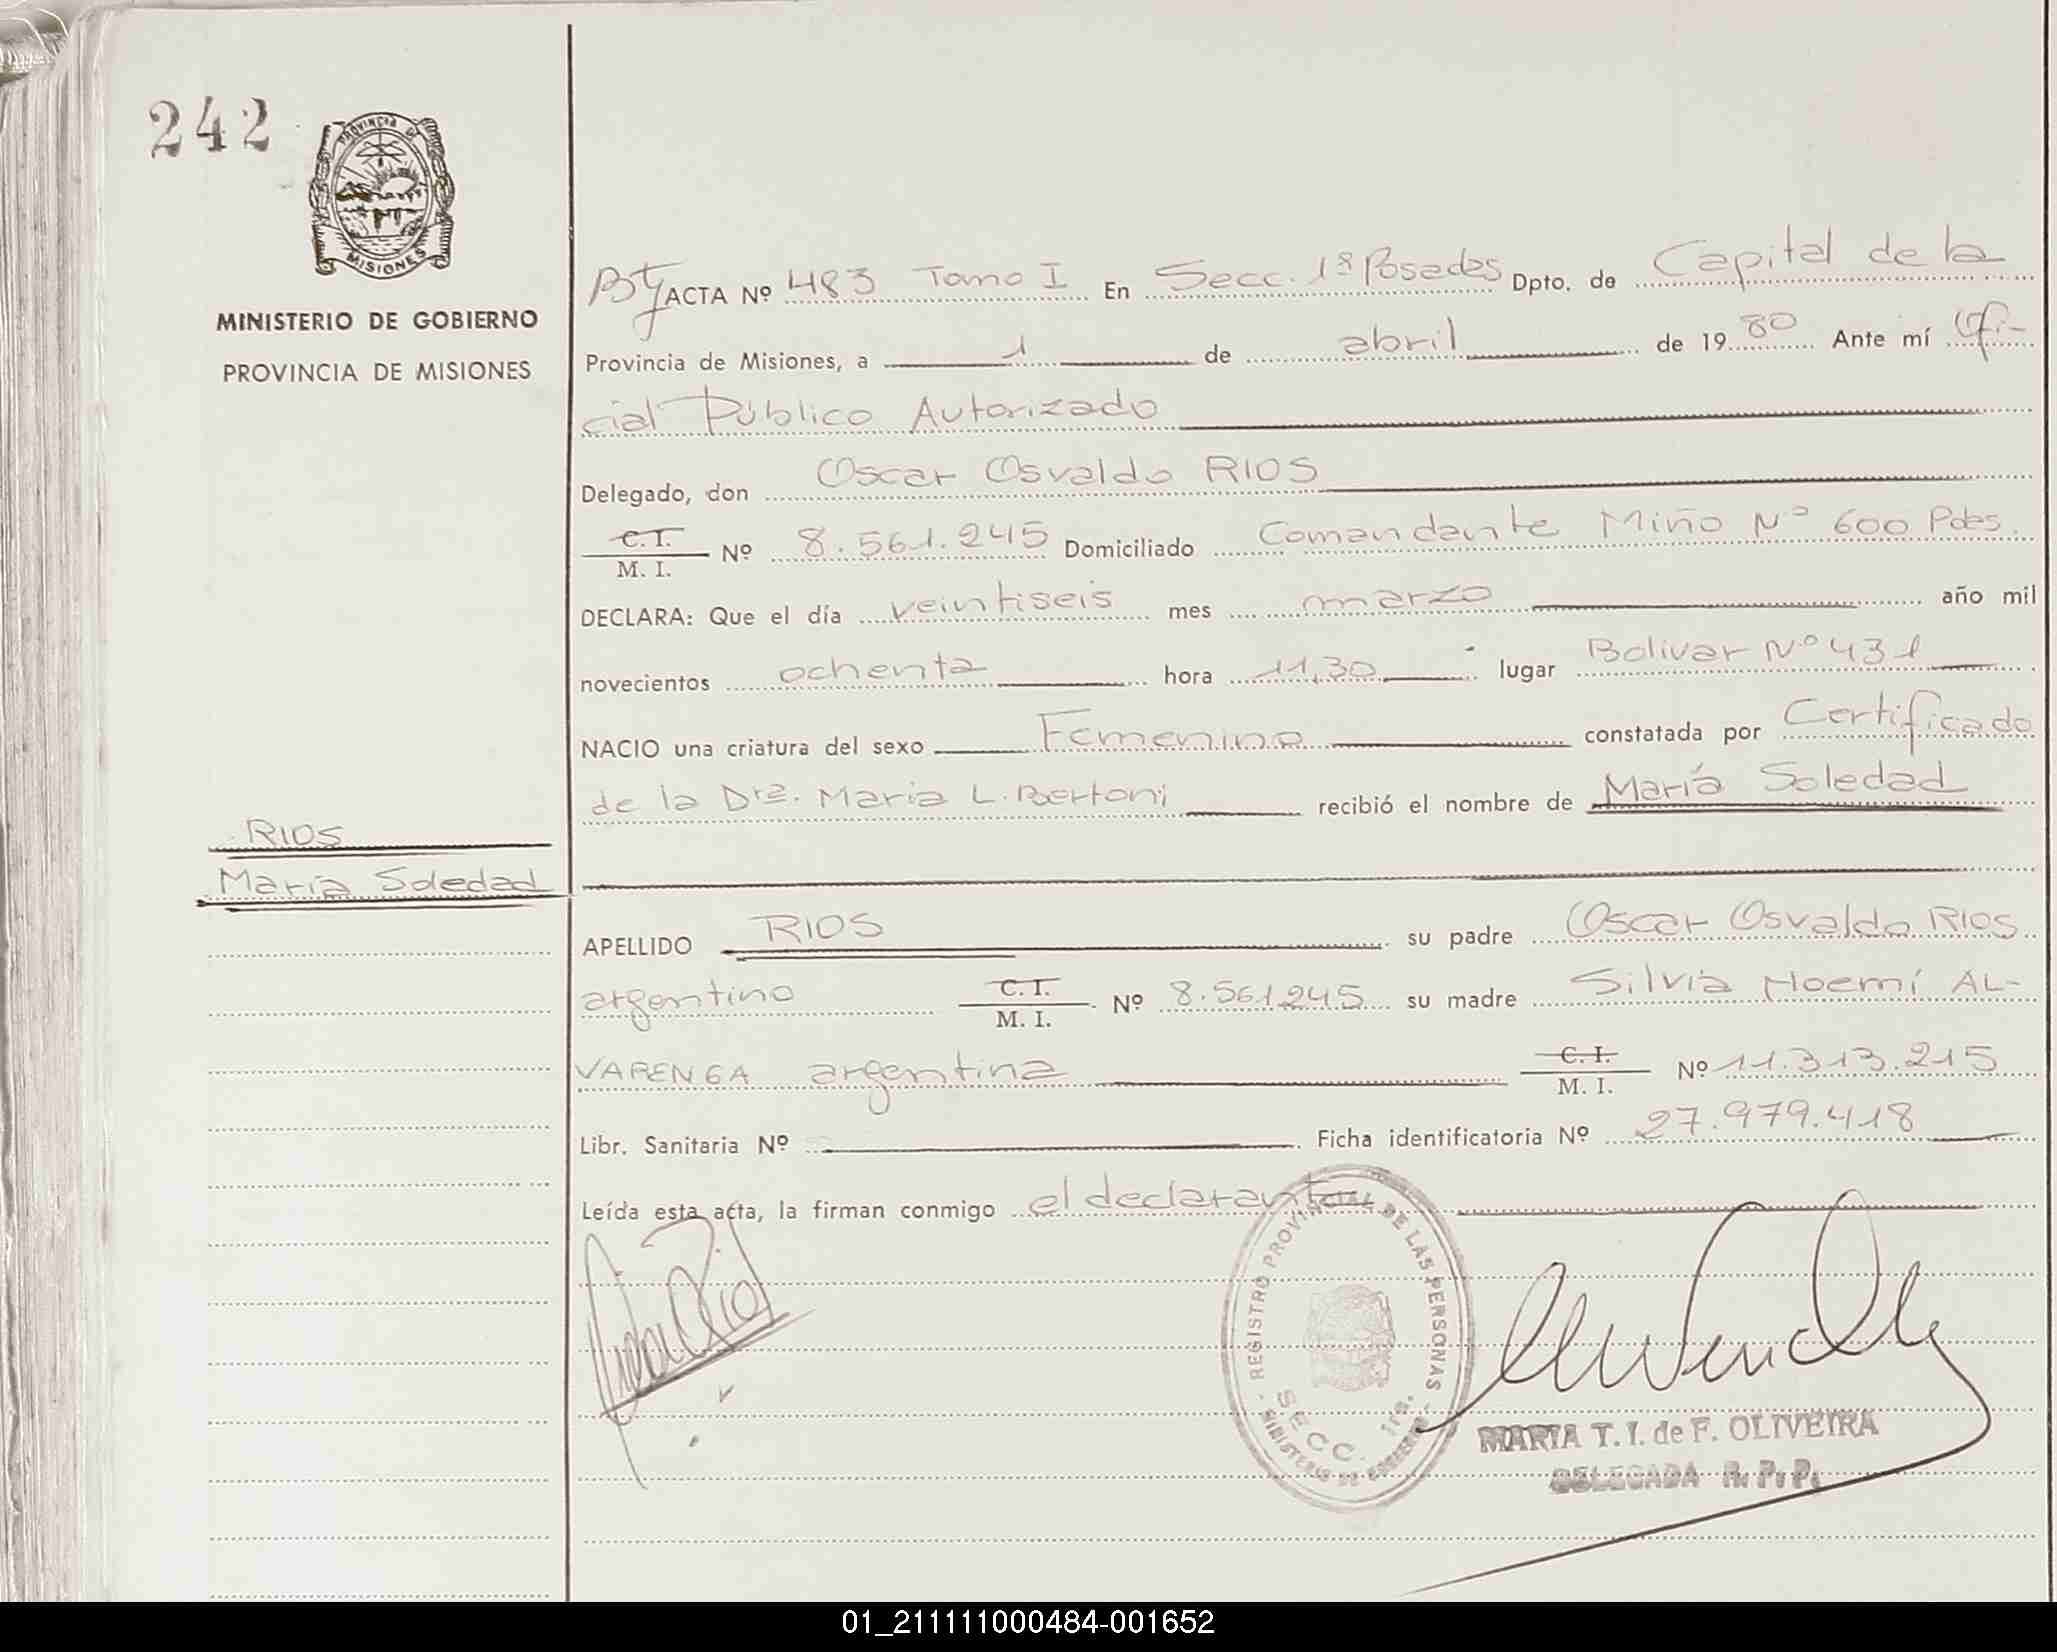 242
PROVINCIA DE
MISIONES
MINISTERIO DE GOBIERNO
PROVINCIA DE MISIONES
RIOS
María Soledad
ACTA Nº 483 Tomo I En Secc. 1ª Posadas Dpto. de Capital de la
Provincia de Misiones, a 1 de abril de 1980 Ante mí Ofi-
cial Público Autorizado
Delegado, don Oscar Osvaldo RIOS
C.I. M. I. Nº 8.561.245 Domiciliado Comandante Miño Nº 600 Pdas.
DECLARA: Que el día veintiseis mes marzo año mil
novecientos ochenta hora 11,30 lugar Bolivar Nº 431
NACIO una criatura del sexo Femenino constatada por Certificado
de la Dra. Maria L. Bertoni recibió el nombre de María Soledad
APELLIDO RIOS su padre Oscar Osvaldo RIOS
argentino C.I. M. I. Nº 8.561.245 su madre Silvia Noemí AL-
VARENGA argentina C.I. M. I. Nº 11.313.215
Libr. Sanitaria Nº Ficha identificatoria Nº 27.979.418
Leída esta acta, la firman conmigo el declarante
REGISTRO PROVINCIAL DE LAS PERSONAS
SECC. 1ra.
MINISTERIO DE GOBIERNO
MARIA T. I. de F. OLIVEIRA
DELEGADA R. P. P.
01_211111000484-001652